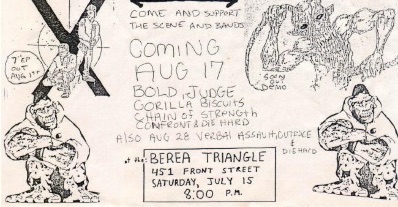 COME AND SUPPORT
THE SCENE AND BANDS
7" EP
OUT
AUG 1st
COMING
AUG 17
BOLD, JUDGE
GORILLA BISCUITS
CHAIN OF STRENGTH
CONFRONT & DIE HARD
ALSO AUG 28 VERBAL ASSAULT, OUTFACE
& DIEHARD
SOON
OUT
DEMO
at the: BEREA TRIANGLE
451 FRONT STREET
SATURDAY, JULY 15
8:00 P.M.